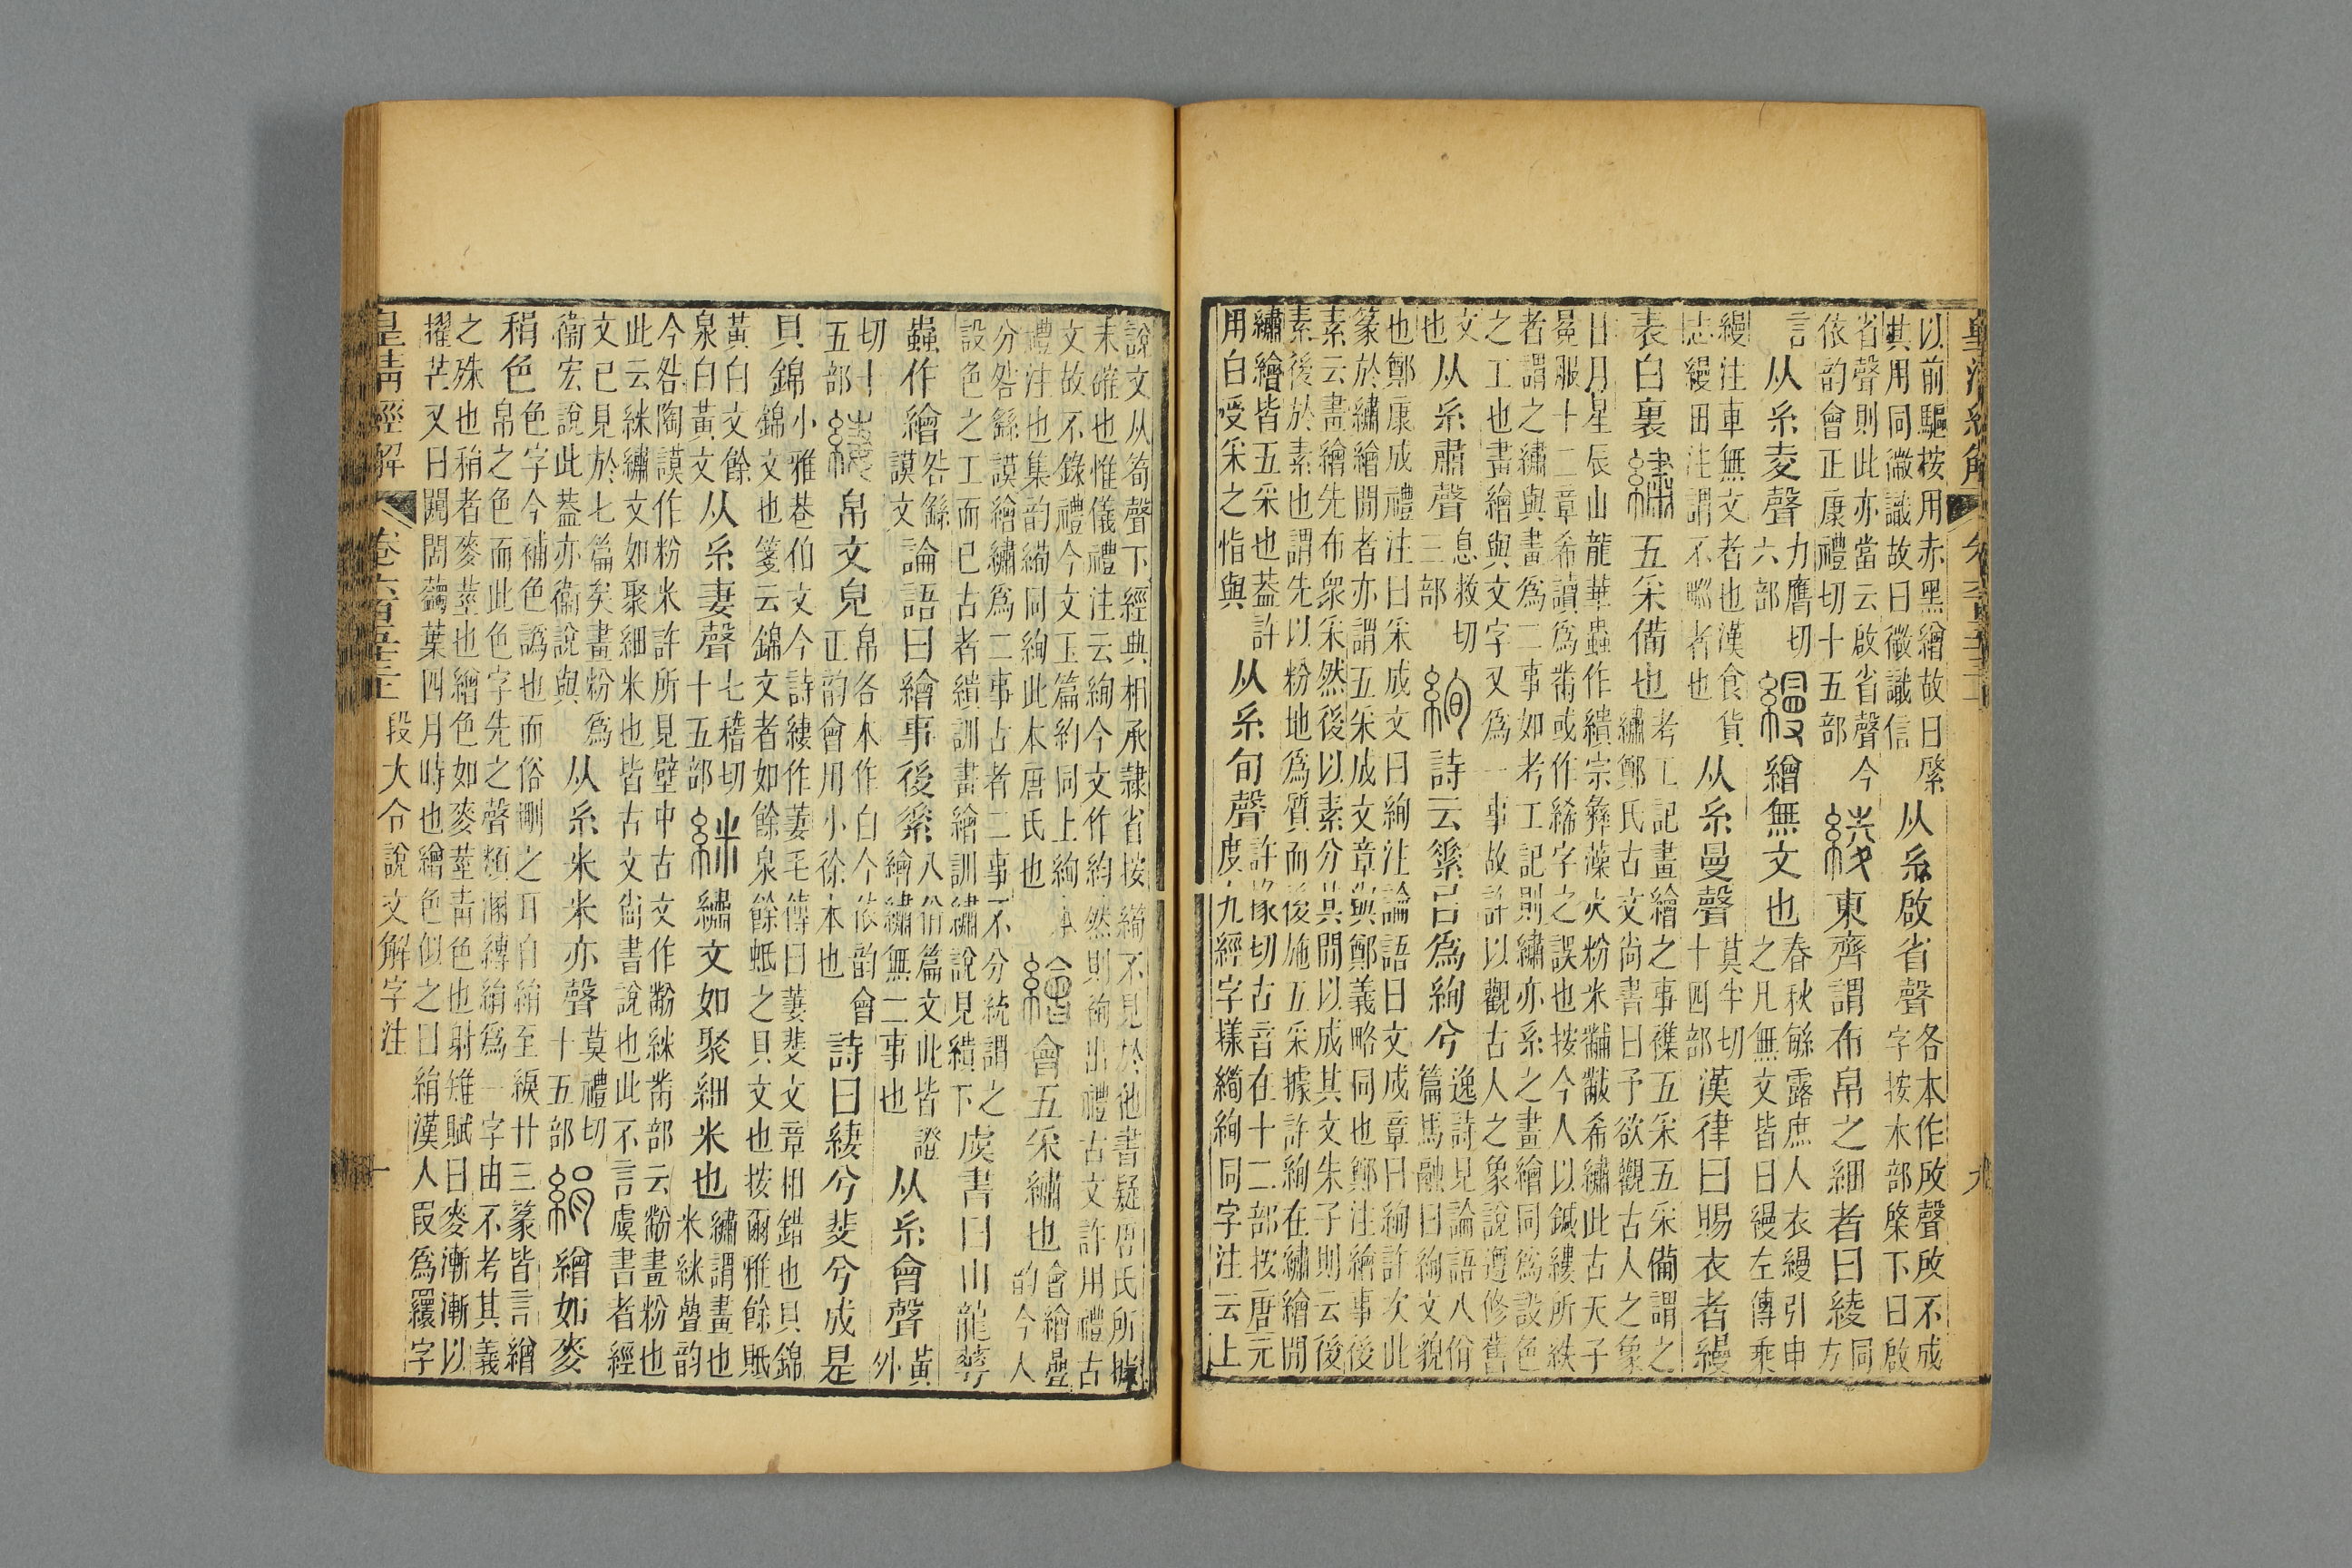 皇清經解
以前驅按用赤黑繒故曰綮
其用同微識故曰徽識信
从糸啟省聲
各本作啟聲啟不成
字按木部棨下曰啟
省聲則此亦當云啟省聲今
依韵會正康禮切十五部
綾
東齊謂布帛之細者曰綾
方
同
言
从糸夌聲
力膺切
六部
縵
繒無文也
春秋繁露庶人衣縵引申
之凡無文皆曰縵左傳乘
縵注車無文者也漢食貨
志縵田注謂不甽者也
从糸曼聲
莫半切
十四部
漢律曰賜衣者縵
表白裏
繡
五采備也
考工記畫繪之事襍五采五采備謂之
繡鄭氏古文尚書曰予欲觀古人之象
日月星辰山龍華蟲作繢宗彝藻火粉米黼黻希繡此古天子
冕服十二章希讀爲黹或作絺字之誤也按今人以鍼縷所紩
者謂之繡與畫爲二事如考工記則繡亦系之畫繪同爲設色
之工也畫繪與文字又爲一事故許以觀古人之象說遵修舊
文
也
从糸肅聲
息救切
三部
絢
詩云素㠯爲絢兮
逸詩見論語八佾
篇馬融曰絢文貌
也鄭康成禮注曰采成文曰絢注論語曰文成章曰絢許次此
篆於繡繪閒者亦謂五采成文章與鄭義略同也鄭注繪事後
素云畫繪先布衆采然後以素分其閒以成其文朱子則云後
素後於素也謂先以粉地爲質而後施五采據許絢在繡繪閒
繡繪皆五采也葢許
用白受采之恉與
从糸旬聲
許掾切古音在十二部按唐元
度九經字樣繝絢同字注云上
說文从筍聲下經典相承隸省按繝不見於他書疑唐氏所據
未確也惟儀禮注云絢今文作約然則絢出禮古文許用禮古
文故不錄禮今文玉篇約同上絢本
禮注也集韵繝同絢此本唐氏也
繪
會五采繡也
會繪疊
韵今人
分咎繇謨繪繡爲二事古者二事不分統謂之
設色之工而已古者繢訓畫繪訓繡說見繢下
虞書曰山龍華
蟲作繪
咎繇
謨文
論語曰繪事後素
八佾篇文此皆證
繪繡無二事也
从糸會聲
黃
外
切十
五部
緀
帛文皃
帛各本作白今依韵會
正韵會用小徐本也
詩曰緀兮斐兮成是
貝錦
小雅巷伯文今詩緀作萋毛傳曰萋斐文章相錯也貝錦
錦文也箋云錦文者如餘泉餘蚳之貝文也按爾雅餘貾
黃白文餘
泉白黃文
从糸妻聲
七稽切
十五部
絑
繡文如聚細米也
繡謂畫也
米絑疊韵
今咎陶謨作粉米許所見壁中古文作黺絑黹部云黺畫粉也
此云絑繡文如聚細米也皆古文尚書說也此不言虞書者經
文已見於七篇矣畫粉爲
衞宏說此葢亦衞說與
从糸米米亦聲
莫禮切
十五部
絹
繒如麥
䅌色
色字今補色譌也而俗刪之耳自絹至綟廿三篆皆言繒
帛之色而此色字先之聲類溷縛絹爲一字由不考其義
之殊也䅌者麥莖也繒色如麥莖青色也射雉賦曰麥漸漸以
擢芒又曰闚閭䕦葉四月時也繒色似之曰絹漢人叚爲繯字
皇清經解
卷六百五十三
段大令說文解字注